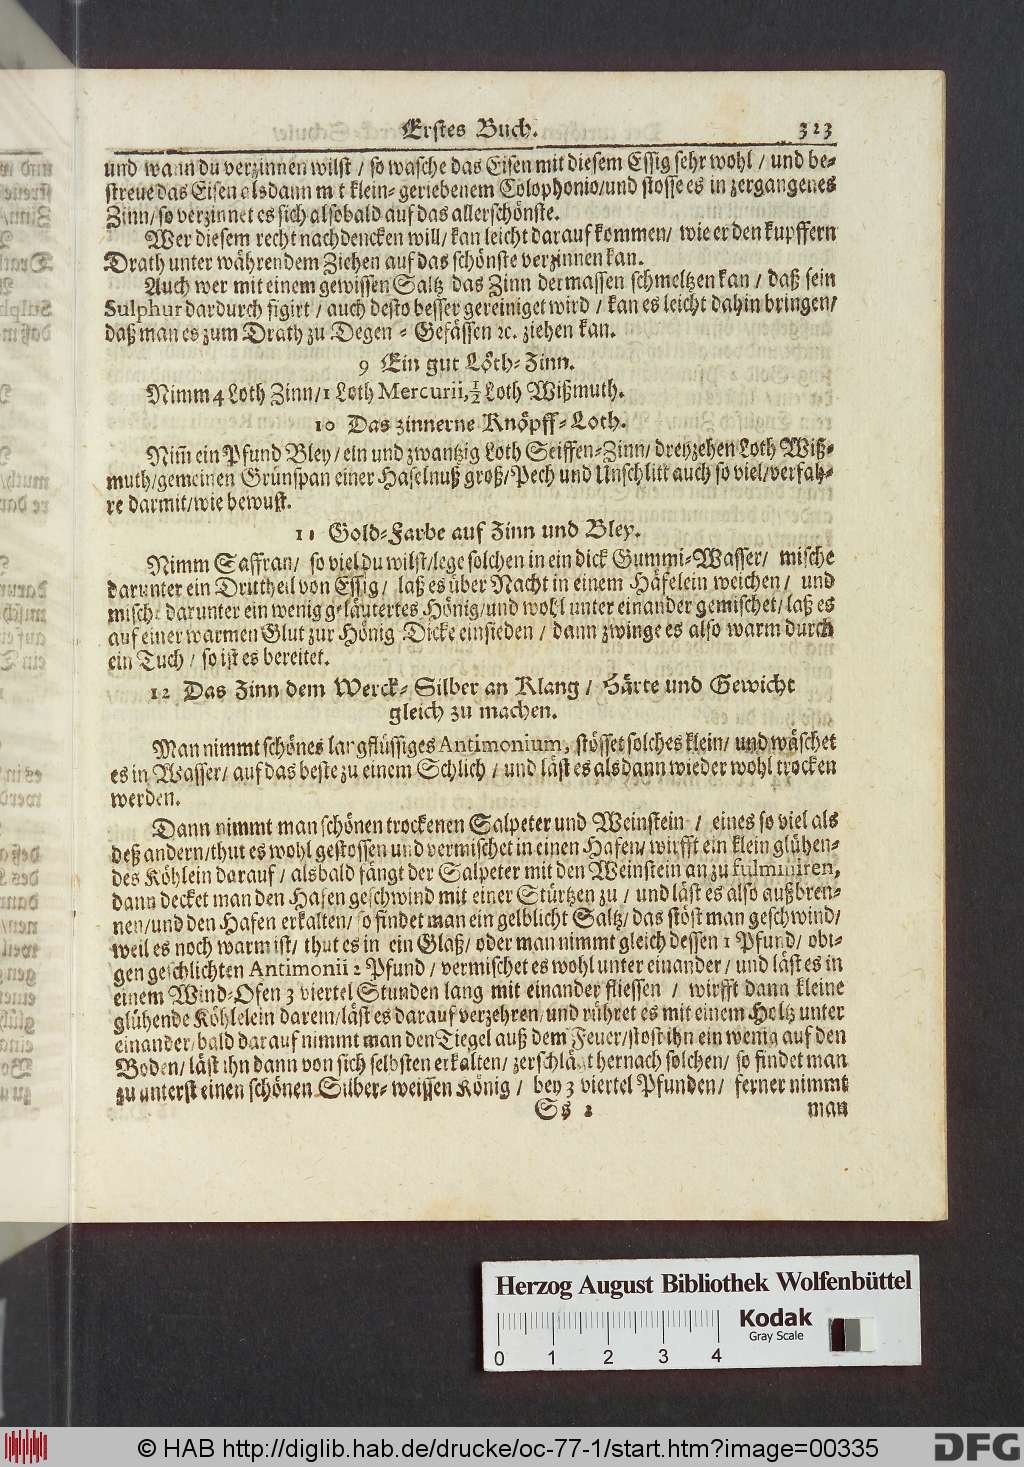 Erstes Buch. 323
und wann du verzinnen wilst / so wasche das Eisen mit diesem Essig sehr wohl / und be-
streue das Eisen alsdann mit klein-geriebenem Colophonio/und stosse es in zergangenes
Zinn/so verzinnet es sich alsobald auf das allerschönste.
Wer diesem recht nachdencken will/ kan leicht darauf kommen/ wie er den kupffern
Drath unter währendem Ziehen auf das schönste verzinnen kan.
Auch wer mit einem gewissen Saltz das Zinn dermassen schmeltzen kan / daß sein
Sulphur dardurch figirt / auch desto besser gereiniget wird / kan es leicht dahin bringen/
daß man es zum Drath zu Degen - Gefässen ꝛc. ziehen kan.
9 Ein gut Löth-Zinn.
Nimm 4 Loth Zinn/1 Loth Mercurii, ½ Loth Wißmuth.
10 Das zinnerne Knöpff-Loth.
Nim̃ ein Pfund Bley/ein und zwantzig Loth Seiffen-Zinn/dreyzehen Loth Wiß-
muth/gemeinen Grünspan einer Haselnuß groß/Pech und Unschlitt auch so viel/verfah-
re darmit/wie bewust.
11 Gold-Farbe auf Zinn und Bley.
Nimm Saffran/ so viel du wilst/lege solchen in ein dick Gummi-Wasser/ mische
darunter ein Drittheil von Essig / laß es über Nacht in einem Häfelein weichen / und
mische darunter ein wenig geläutertes Hönig/und wohl unter einander gemischet/laß es
auf einer warmen Glut zur Hönig Dicke einsieden / dann zwinge es also warm durch
ein Tuch / so ist es bereitet.
12 Das Zinn dem Werck-Silber an Klang / Härte und Gewicht
gleich zu machen.
Man nimmt schönes langflüssiges Antimonium, stösset solches klein/ und wäschet
es in Wasser/ auf das beste zu einem Schlich / und läst es alsdann wieder wohl trocken
werden.
Dann nimmt man schönen trockenen Salpeter und Weinstein / eines so viel als
deß andern/thut es wohl gestossen und vermischet in einen Hafen/ wirfft ein klein glühen-
des Köhlein darauf / alsbald fängt der Salpeter mit den Weinstein an zu fulminiren,
dann decket man den Hafen geschwind mit einer Stürtzen zu / und läst es also außbren-
nen/und den Hafen erkalten/ so findet man ein gelblicht Saltz/ das stöst man geschwind/
weil es noch warm ist/ thut es in ein Glaß/ oder man nimmt gleich dessen 1 Pfund/ obi-
gen geschlichten Antimonii 2 Pfund / vermischet es wohl unter einander / und läst es in
einem Wind-Ofen 3 viertel Stunden lang mit einander fliessen / wirfft dann kleine
glühende Köhlelein darein/läst es darauf verzehren/und rühret es mit einem Holtz unter
einander/ bald darauf nimmt man den Tiegel auß dem Feuer/stost ihn ein wenig auf den
Boden/ läst ihn dann von sich selbsten erkalten/ zerschlägt hernach solchen/ so findet man
zu unterst einen schönen Silber-weissen König / bey 3 viertel Pfunden/ ferner nimmt
Ss 2 man
Herzog August Bibliothek Wolfenbüttel
Kodak
Gray Scale
0 1 2 3 4
© HAB http://diglib.hab.de/drucke/oc-77-1/start.htm?image=00335
DFG